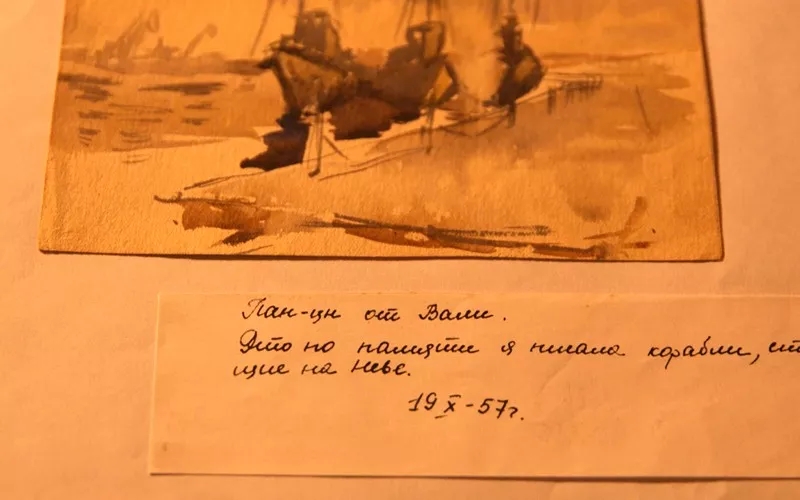 Пан-цн от Вали.
Это по памяти я писала корабли, ст
щие на Неве.
19 X-57г.